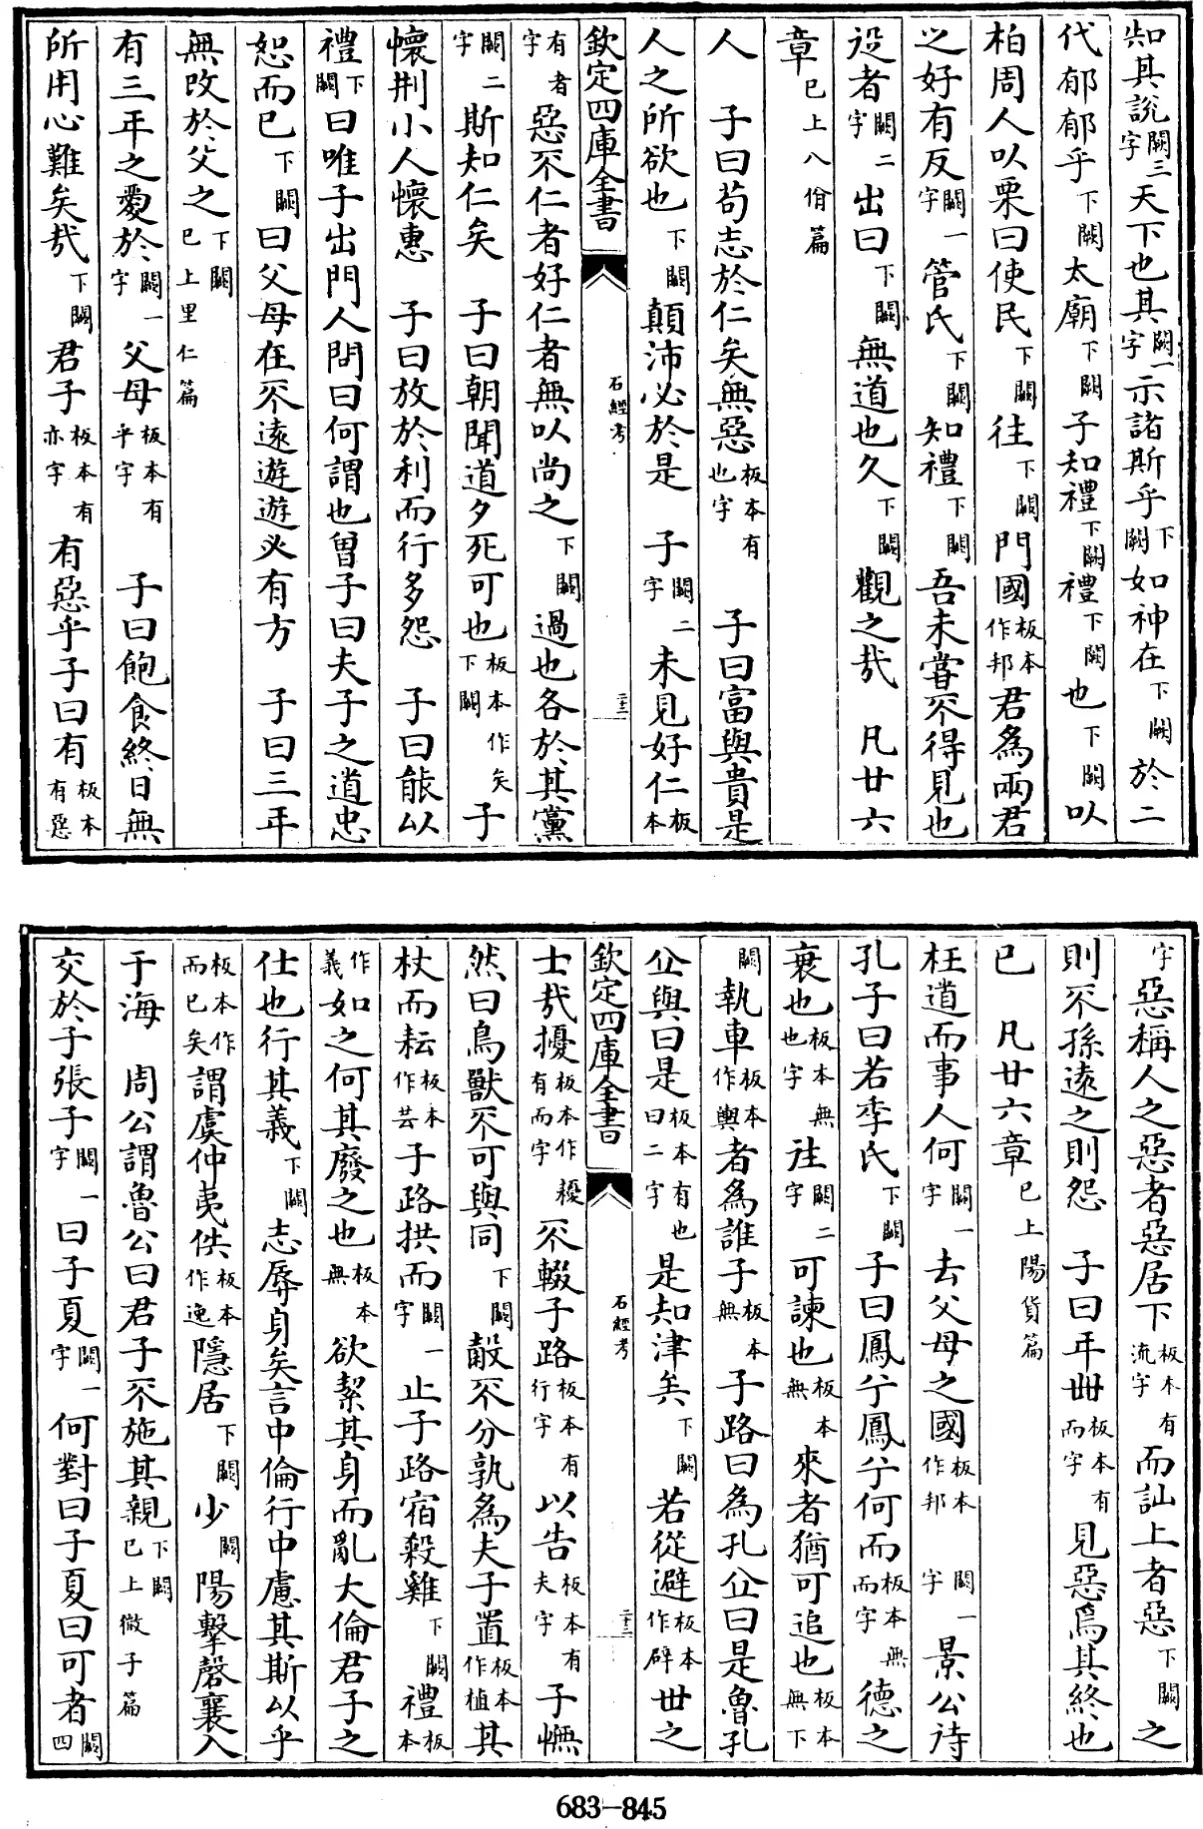 知其說闕三字天下也其闕一字示諸斯乎下闕如神在下闕於二
代郁郁乎下闕太廟下闕子知禮下闕禮下闕也下闕以
柏周人以栗曰使民下闕往下闕門國板本作邦君為兩君
之好有反闕一字管氏下闕知禮下闕吾未甞不得見也
從者闕二字出曰下闕無道也久下闕觀之㢤 凡廿六
章已上八佾篇
人 子曰苟志於仁矣無惡板本有也字 子曰富與貴是
人之所欲也下闕顛沛必於是 子闕二字未見好仁板本
欽定四庫全書 石經考 二十二
有者字惡不仁者好仁者無以尚之下闕過也各於其黨
闕二字斯知仁矣 子曰朝聞道夕死可也板本作矣下闕子
懷㓝小人懷惠 子曰放於利而行多怨 子曰能以
禮下闕曰唯子出門人問曰何謂也曾子曰夫子之道忠
恕而已下闕曰父母在不遠遊遊必有方 子曰三年
無改於父之下闕已上里仁篇
有三年之愛於闕一字父母板本有乎字 子曰飽食終日無
所用心難矣㢤下闕君子板本有亦字有惡乎子曰有板本有惡
字惡稱人之惡者惡居下板本有流字而訕上者惡下闕之
則不孫遠之則怨 子曰年卌板本有而字見惡焉其終也
已 凡廿六章已上陽貨篇
枉道而事人何闕一字去父母之國板本作邦 闕一字景公待
孔子曰若季氏下闕子曰鳳兮鳳兮何而板本無而字德之
衰也板本無也字往闕二字可諫也板本無來者猶可追也板本無下
闕執車板本作輿者為誰子板本無子路曰為孔丘曰是魯孔
丘與曰是板本有也曰二字是知津矣下闕若從避板本作辟世之
欽定四庫全書 石經考 二十三
士㢤擾板本作耰有而字不輟子路板本有行字以告板本有夫字子憮
然曰鳥獸不可與同下闕㪇不分孰為夫子置板本作植其
杖而耘板本作芸子路拱而闕一字止子路宿殺雞下闕禮板本
作義如之何其廢之也板本無欲絜其身而亂大倫君子之
仕也行其義下闕志辱身矣言中倫行中慮其斯以乎
板本作而已矣謂虞仲夷佚板本作逸隱居下闕少闕陽擊磬襄入
于海 周公謂魯公曰君子不施其親下闕已上微子篇
交於子張子闕一字曰子夏闕一字何對曰子夏曰可者闕四
683-845